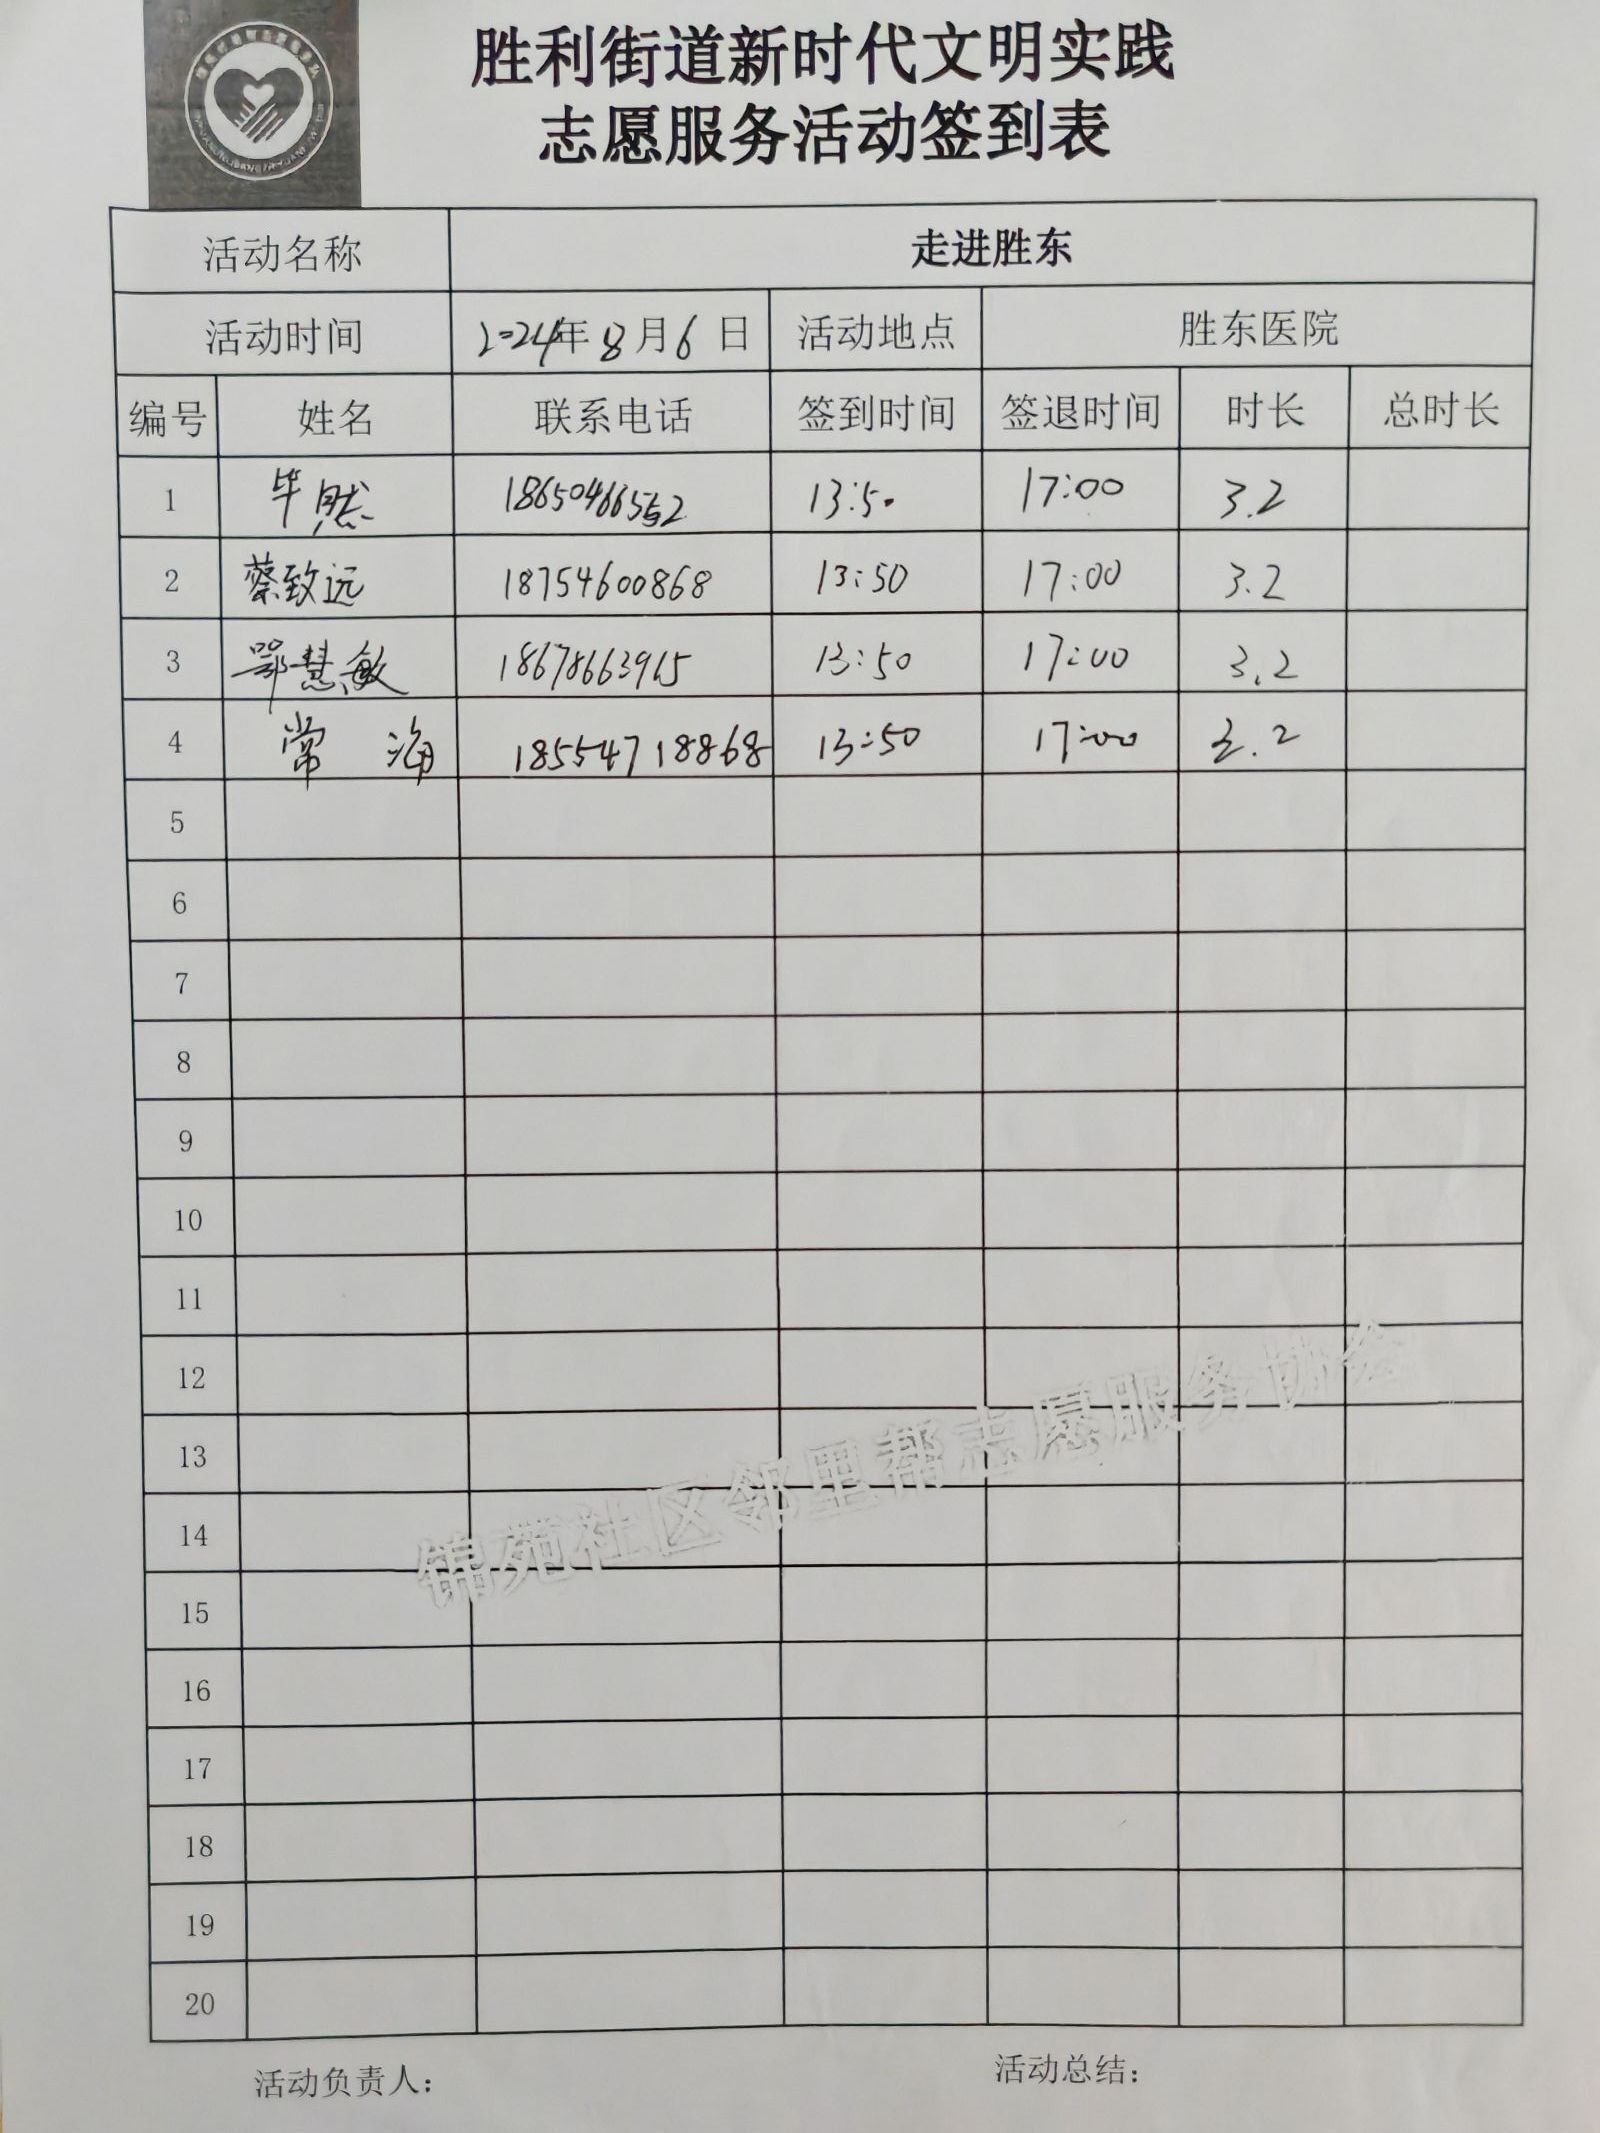 胜利街道新时代文明实践
志愿服务活动签到表
活动名称 走进胜东
活动时间 2024年8月6日 活动地点 胜东医院
编号 姓名 联系电话 签到时间 签退时间 时长 总时长
1 毕然 18650466552 13:50 17:00 3.2
2 蔡致远 18754600868 13:50 17:00 3.2
3 鄂慧敏 18678663915 13:50 17:00 3.2
4 常海 18554718868 13:50 17:00 3.2
5
6
7
8
9
10
11
12
13
14
15
16
17
18
19
20
锦苑社区邻里帮志愿服务协会
活动负责人: 活动总结: